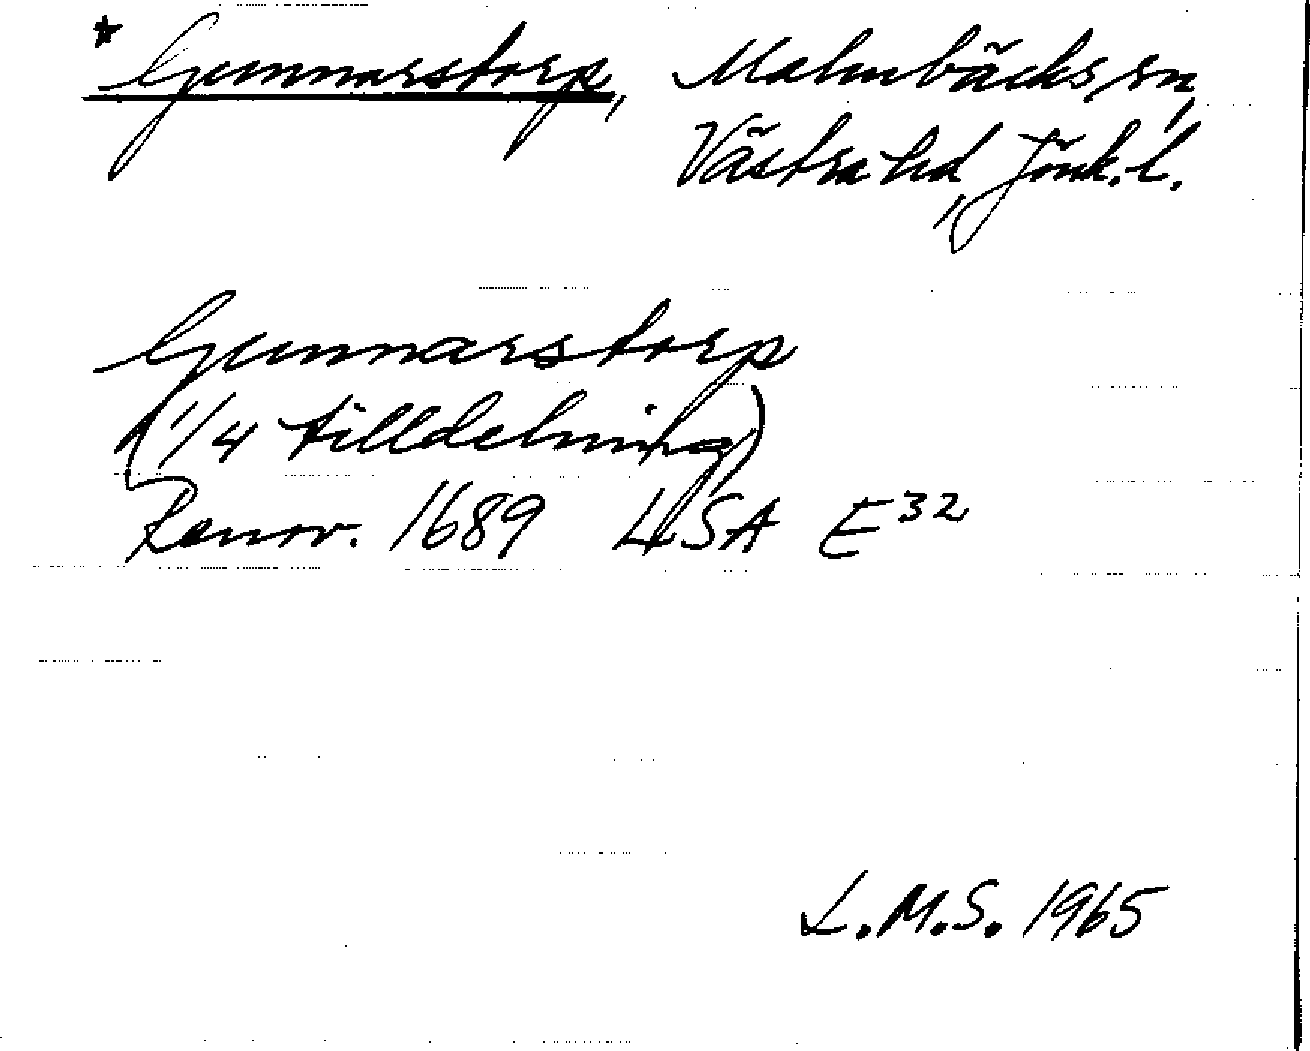 * Gunnarstorp, Malmbäcks sn,
Västra hd, Jönk. l.
Gunnarstorp
(1/4 tilldelning)
Renov. 1689 LSA E32
L.M.S. 1965